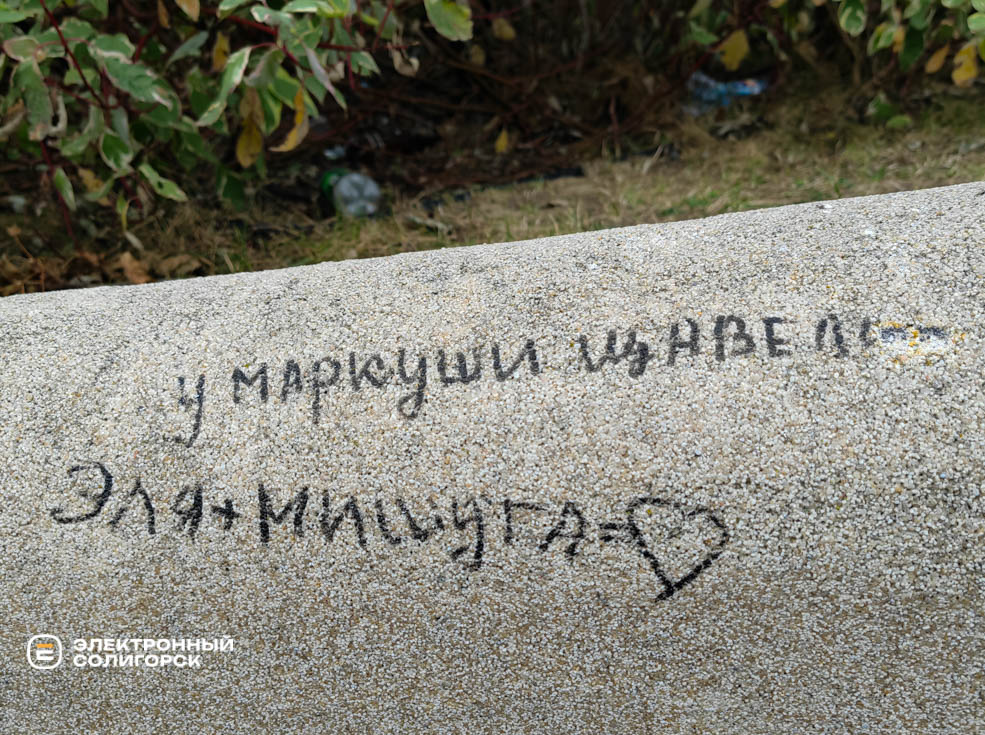 У МАРКУШИ ЩАВЕЛ
Эля+МИШУГА=
ЭЛЕКТРОННЫЙ
СОЛИГОРСК